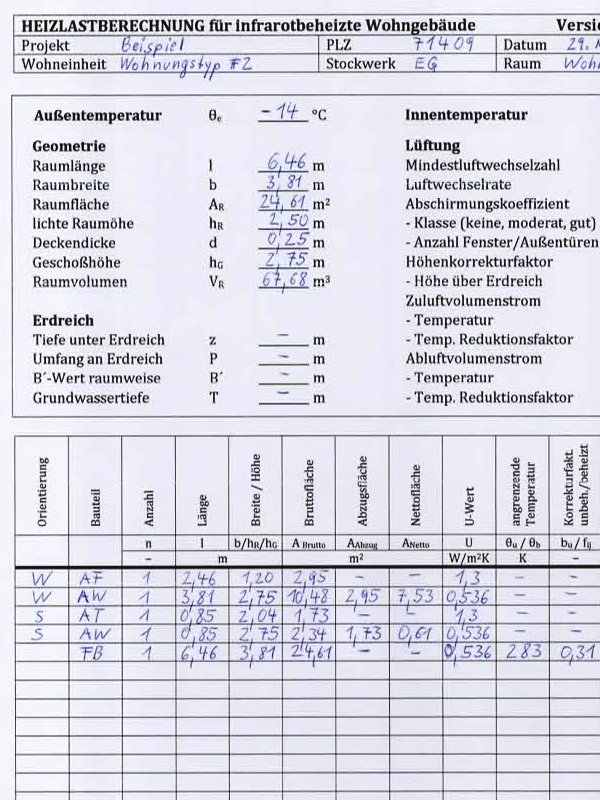 HEIZLASTBERECHNUNG für infrarotbeheizte Wohngebäude
Projekt Beispiel PLZ 71409 Datum 29.
Wohneinheit Wohnungstyp #2 Stockwerk EG Raum
Außentemperatur θe -14 °C Innentemperatur
Geometrie Lüftung
Raumlänge l 6,46 m Mindestluftwechselzahl
Raumbreite b 3,81 m Luftwechselrate
Raumfläche AR 24,61 m² Abschirmungskoeffizient
lichte Raumöhe hR 2,50 m - Klasse (keine, moderat, gut)
Deckendicke d 0,25 m - Anzahl Fenster/Außentüren
Geschoßhöhe hG 2,75 m Höhenkorrekturfaktor
Raumvolumen VR 67,68 m³ - Höhe über Erdreich
Zuluftvolumenstrom
Erdreich - Temperatur
Tiefe unter Erdreich z – m - Temp. Reduktionsfaktor
Umfang an Erdreich P – m Abluftvolumenstrom
B´-Wert raumweise B´ – m - Temperatur
Grundwassertiefe T – m - Temp. Reduktionsfaktor
Orientierung Bauteil Anzahl Länge Breite / Höhe Bruttofläche Abzugsfläche Nettofläche U-Wert angrenzende Temperatur Korrekturfakt. unbeh./beheizt
n l b/hR/hG A Brutto AAbzug ANetto U θu / θb bu / fij
– m m² W/m²K K –
W AF 1 2,46 1,20 2,95 – – 1,3 – –
W AW 1 3,81 2,75 10,48 2,95 7,53 0,536 – –
S AT 1 0,85 2,04 1,73 – – 1,3 – –
S AW 1 0,85 2,75 2,34 1,73 0,61 0,536 – –
FB 1 6,46 3,81 24,61 – – 0,536 283 0,31